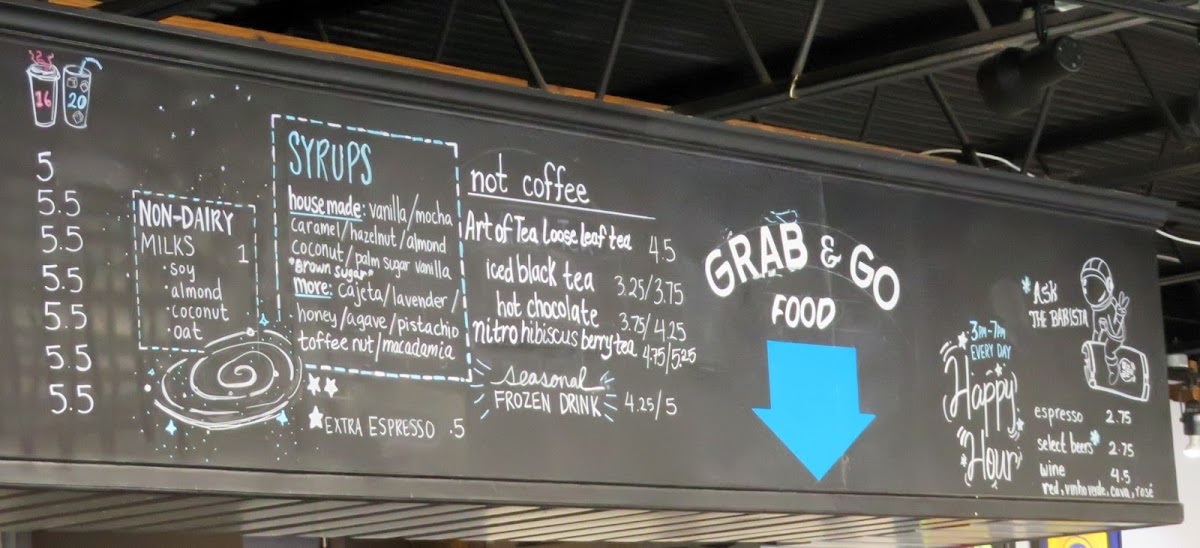 16 20
5
5.5
5.5
5.5
5.5
5.5
5.5
NON-DAIRY
MILKS 1
· soy
· almond
· coconut
· oat
SYRUPS
housemade: vanilla/mocha
caramel/hazelnut/almond
coconut/palm sugar vanilla
*Brown sugar*
more: cajeta/lavender/
honey/agave/pistachio
toffee nut/macadamia
EXTRA ESPRESSO .5
not coffee
Art of Tea Loose leaf tea 4.5
iced black tea 3.25/3.75
hot chocolate 3.75/4.25
nitro hibiscus berry tea 4.75/5.25
seasonal
FROZEN DRINK 4.25/5
GRAB & GO
FOOD
3PM-7PM
EVERY DAY
Happy
Hour
*Ask
THE BARISTA
espresso 2.75
select beers* 2.75
wine 4.5
red, vinho verde, cava, rosé